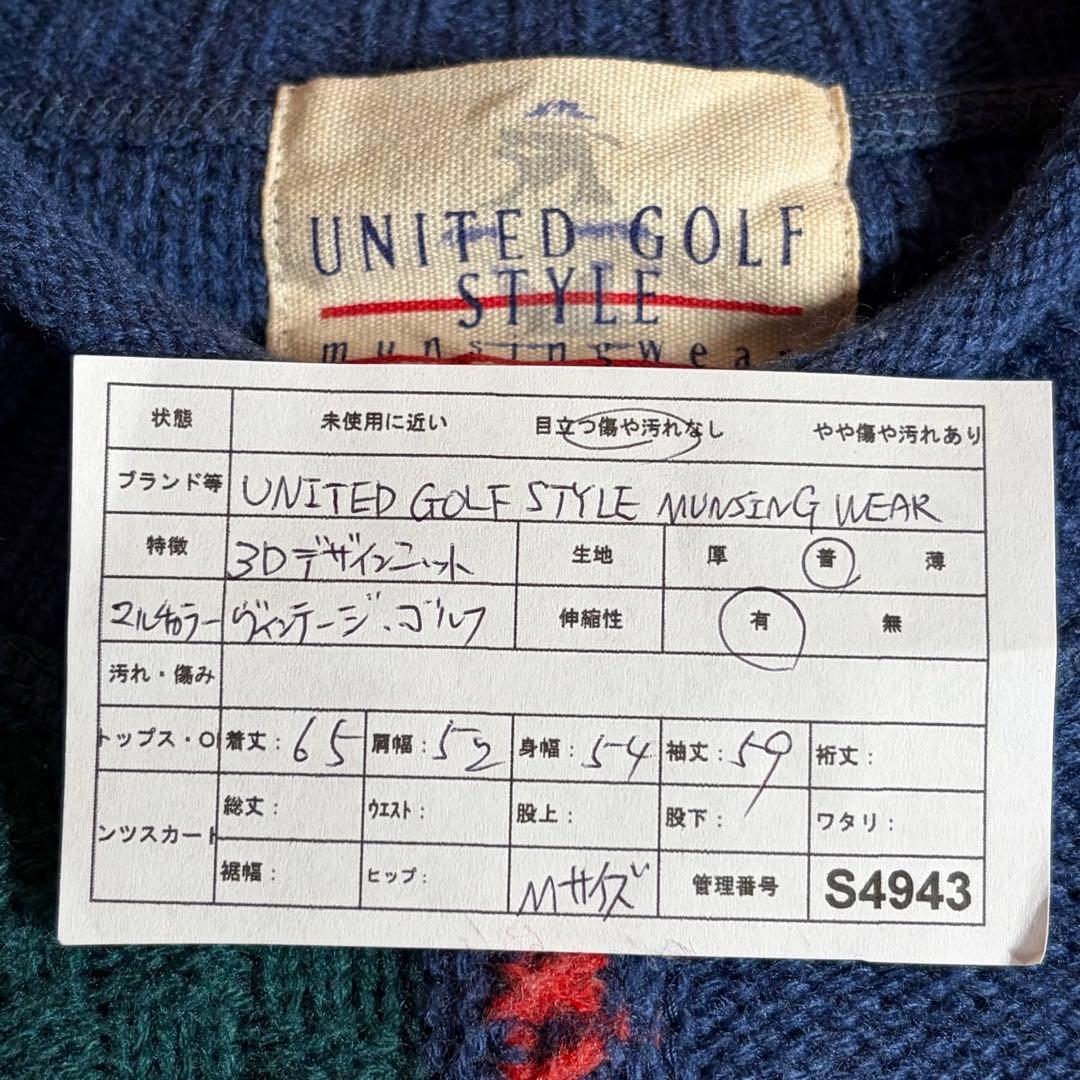 UNITED GOLF
STYLE
munsingwear
状態 未使用に近い 目立つ傷や汚れなし やや傷や汚れあり
ブランド等 UNITED GOLF STYLE MUNSING WEAR
特徴 3Dデザインニット 生地 厚 普 薄
マルチカラー ヴィンテージ.ゴルフ 伸縮性 有 無
汚れ・傷み
トップス・O 着丈: 65 肩幅: 52 身幅: 54 袖丈: 59 裄丈:
ンツスカート 総丈: ウエスト: 股上: 股下: ワタリ:
裾幅: ヒップ: Mサイズ 管理番号 S4943